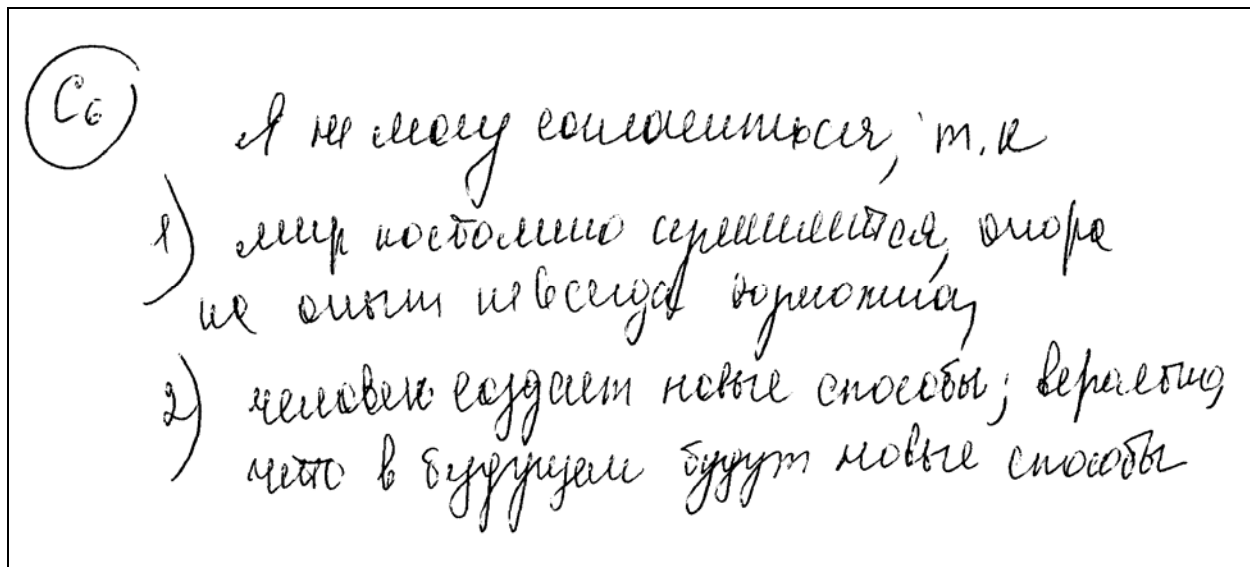 С6
Я не могу согласиться, т.к
1) мир постоянно изменяется, опора
на опыт не всегда возможна,
2) человек создает новые способы; вероятно,
что в будущем будут новые способы